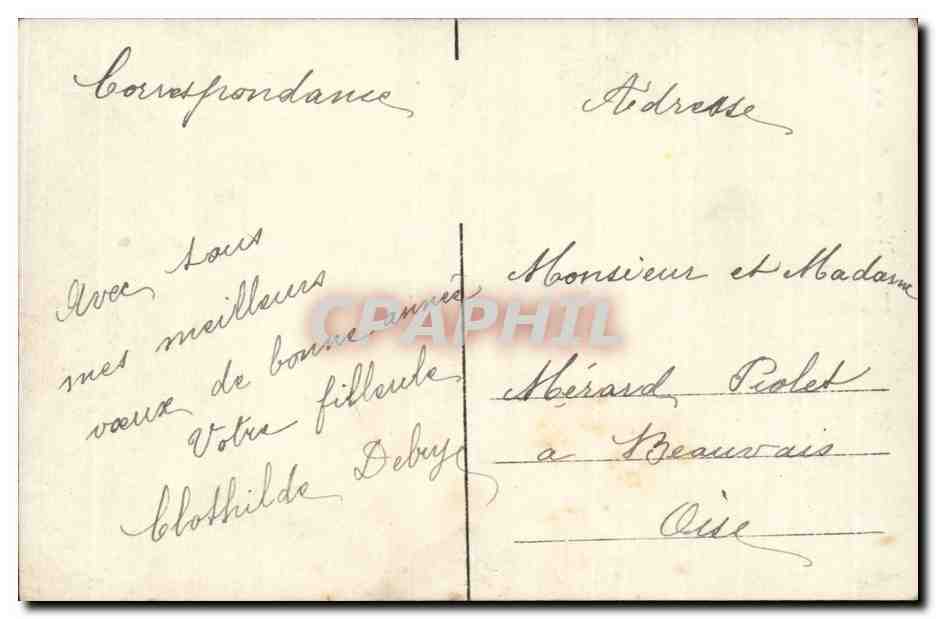 Correspondance
Avec tous
mes meilleurs
vœux de bonne année
Votre filleule
Clothilde Debrye
Adresse
Monsieur et Madame
Mérard Piolet
a Beauvais
Oise
CPAPHIL